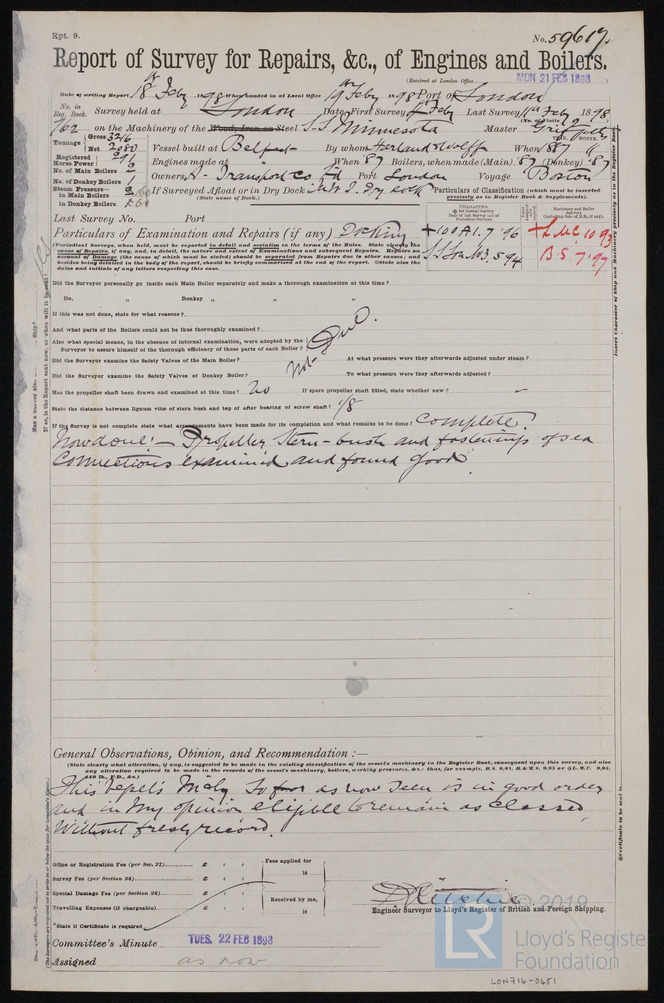 Rpt. 9.
No. 59617.
Report of Survey for Repairs, &c., of Engines and Boilers.
(Received at London Office
MON 21 FEB 1898
Date of writing Report 18 Feby 1898 When handed in at Local Office 19 Feby 1898 Port of London
No. in Reg. Book. Survey held at London Date, First Survey Feby Last Survey Feby 1898
762 on the Machinery of the Wood, Iron or Steel S.S. Minnesota Master
Tonnage Gross 3216 Net 2080 Vessel built at Belfast By whom Harland & Wolff When 1887
Registered Horse Power 291 Engines made at " When 87 Boilers, when made (Main) 87 (Donkey) 87
No. of Main Boilers 2 Owners A. Transport Co Ld Port London Voyage Boston
No. of Donkey Boilers 1
Steam Pressure— in Main Boilers 160 If Surveyed Afloat or in Dry Dock in W. I. Dry dock
in Donkey Boilers 60 (State name of Dock.)
Particulars of Classification (which must be inserted precisely as in Register Book & Supplements).
Last Survey No. Port
CHARACTER.
Machinery and Boiler Surveys
+100A1. 7.96
S.S. Lon. No3. 5.94
+LMC 10.93
B.S 7.97
Particulars of Examination and Repairs (if any) Docking
(Periodical Surveys, when held, must be reported in detail and seriatim in the terms of the Rules. State clearly the
cause of Repairs, if any, and, in detail, the nature and extent of Examinations and subsequent Repairs. Repairs on
account of Damage (the cause of which must be stated) should be separated from Repairs due to other causes; and
besides being detailed in the body of the report, should be briefly summarised at the end of the report. State also the
dates and initials of any letters respecting this case.
Did the Surveyor personally go inside each Main Boiler separately and make a thorough examination at this time?
Do. " Donkey " " "
If this was not done, state for what reasons?
And what parts of the Boilers could not be thus thoroughly examined?
Also what special means, in the absence of internal examination, were adopted by the
Surveyor to assure himself of the thorough efficiency of those parts of each Boiler?
Not Due.
Did the Surveyor examine the Safety Valves of the Main Boiler? At what pressure were they afterwards adjusted under steam?
Did the Surveyor examine the Safety Valves of Donkey Boiler? To what pressure were they afterwards adjusted?
Has the propeller shaft been drawn and examined at this time? No If spare propeller shaft fitted, state whether new?
State the distance between lignum vitæ of stern bush and top of after bearing of screw shaft? 1/8
If the Survey is not complete state what arrangements have been made for its completion and what remains to be done? Complete.
Now done:— Propeller, Stern-bush and fastenings of sea
Connections examined and found good.
General Observations, Opinion, and Recommendation:—
(State clearly what alteration, if any, is suggested to be made in the existing classification of the vessel's machinery in the Register Book, consequent upon this survey, and also
any alteration required to be made in the records of the vessel's machinery, boilers, working pressures, &c.: thus, for example, B.S. 9,95, B.&M.S. 9,95 or L.M.C. 9,95,
This Vessel's Mchy so far as now seen is in good order
and in my opinion eligible to remain as Classed
Without fresh record.
Office or Registration Fee (per Sec. 27) £ : :
Fees applied for
Survey Fee (per Section 28) £ : :
18
Special Damage Fee (per Section 28) £ : :
Received by me,
Travelling Expenses (if chargeable) £ : :
18
*State if Certificate is required
D. Ritchie
Engineer Surveyor to Lloyd's Register of British and Foreign Shipping.
Committee's Minute TUES. 22 FEB 1898
Assigned as now
© 2019
LR
Lloyd's Register
Foundation
LON714-0451